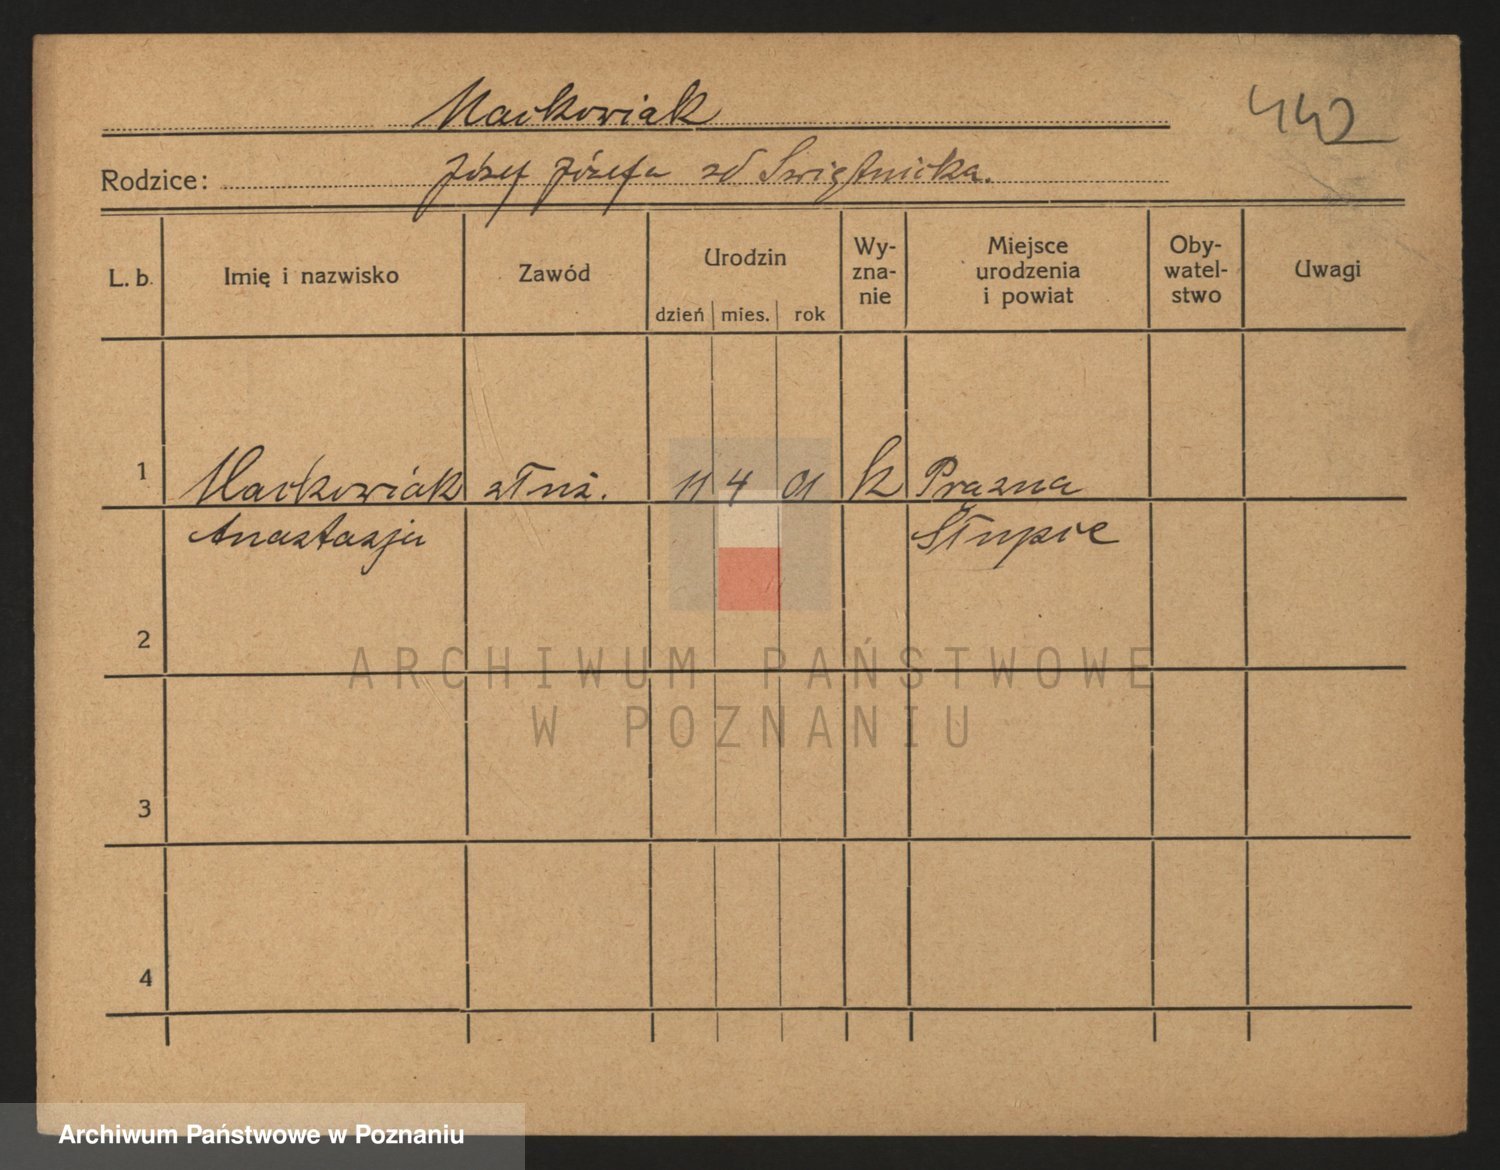 Maćkowiak
442
Rodzice: Józef Józefa zd Świętnicka.
L. b. Imię i nazwisko Zawód Urodzin dzień mies. rok Wy-zna-nie Miejsce urodzenia i powiat Oby-watel-stwo Uwagi
1 Maćkowiak służ. 11 4 01 k
Anastazja
2
ARCHIWUM PAŃSTWOWE
W POZNANIU
3
4
Archiwum Państwowe w Poznaniu